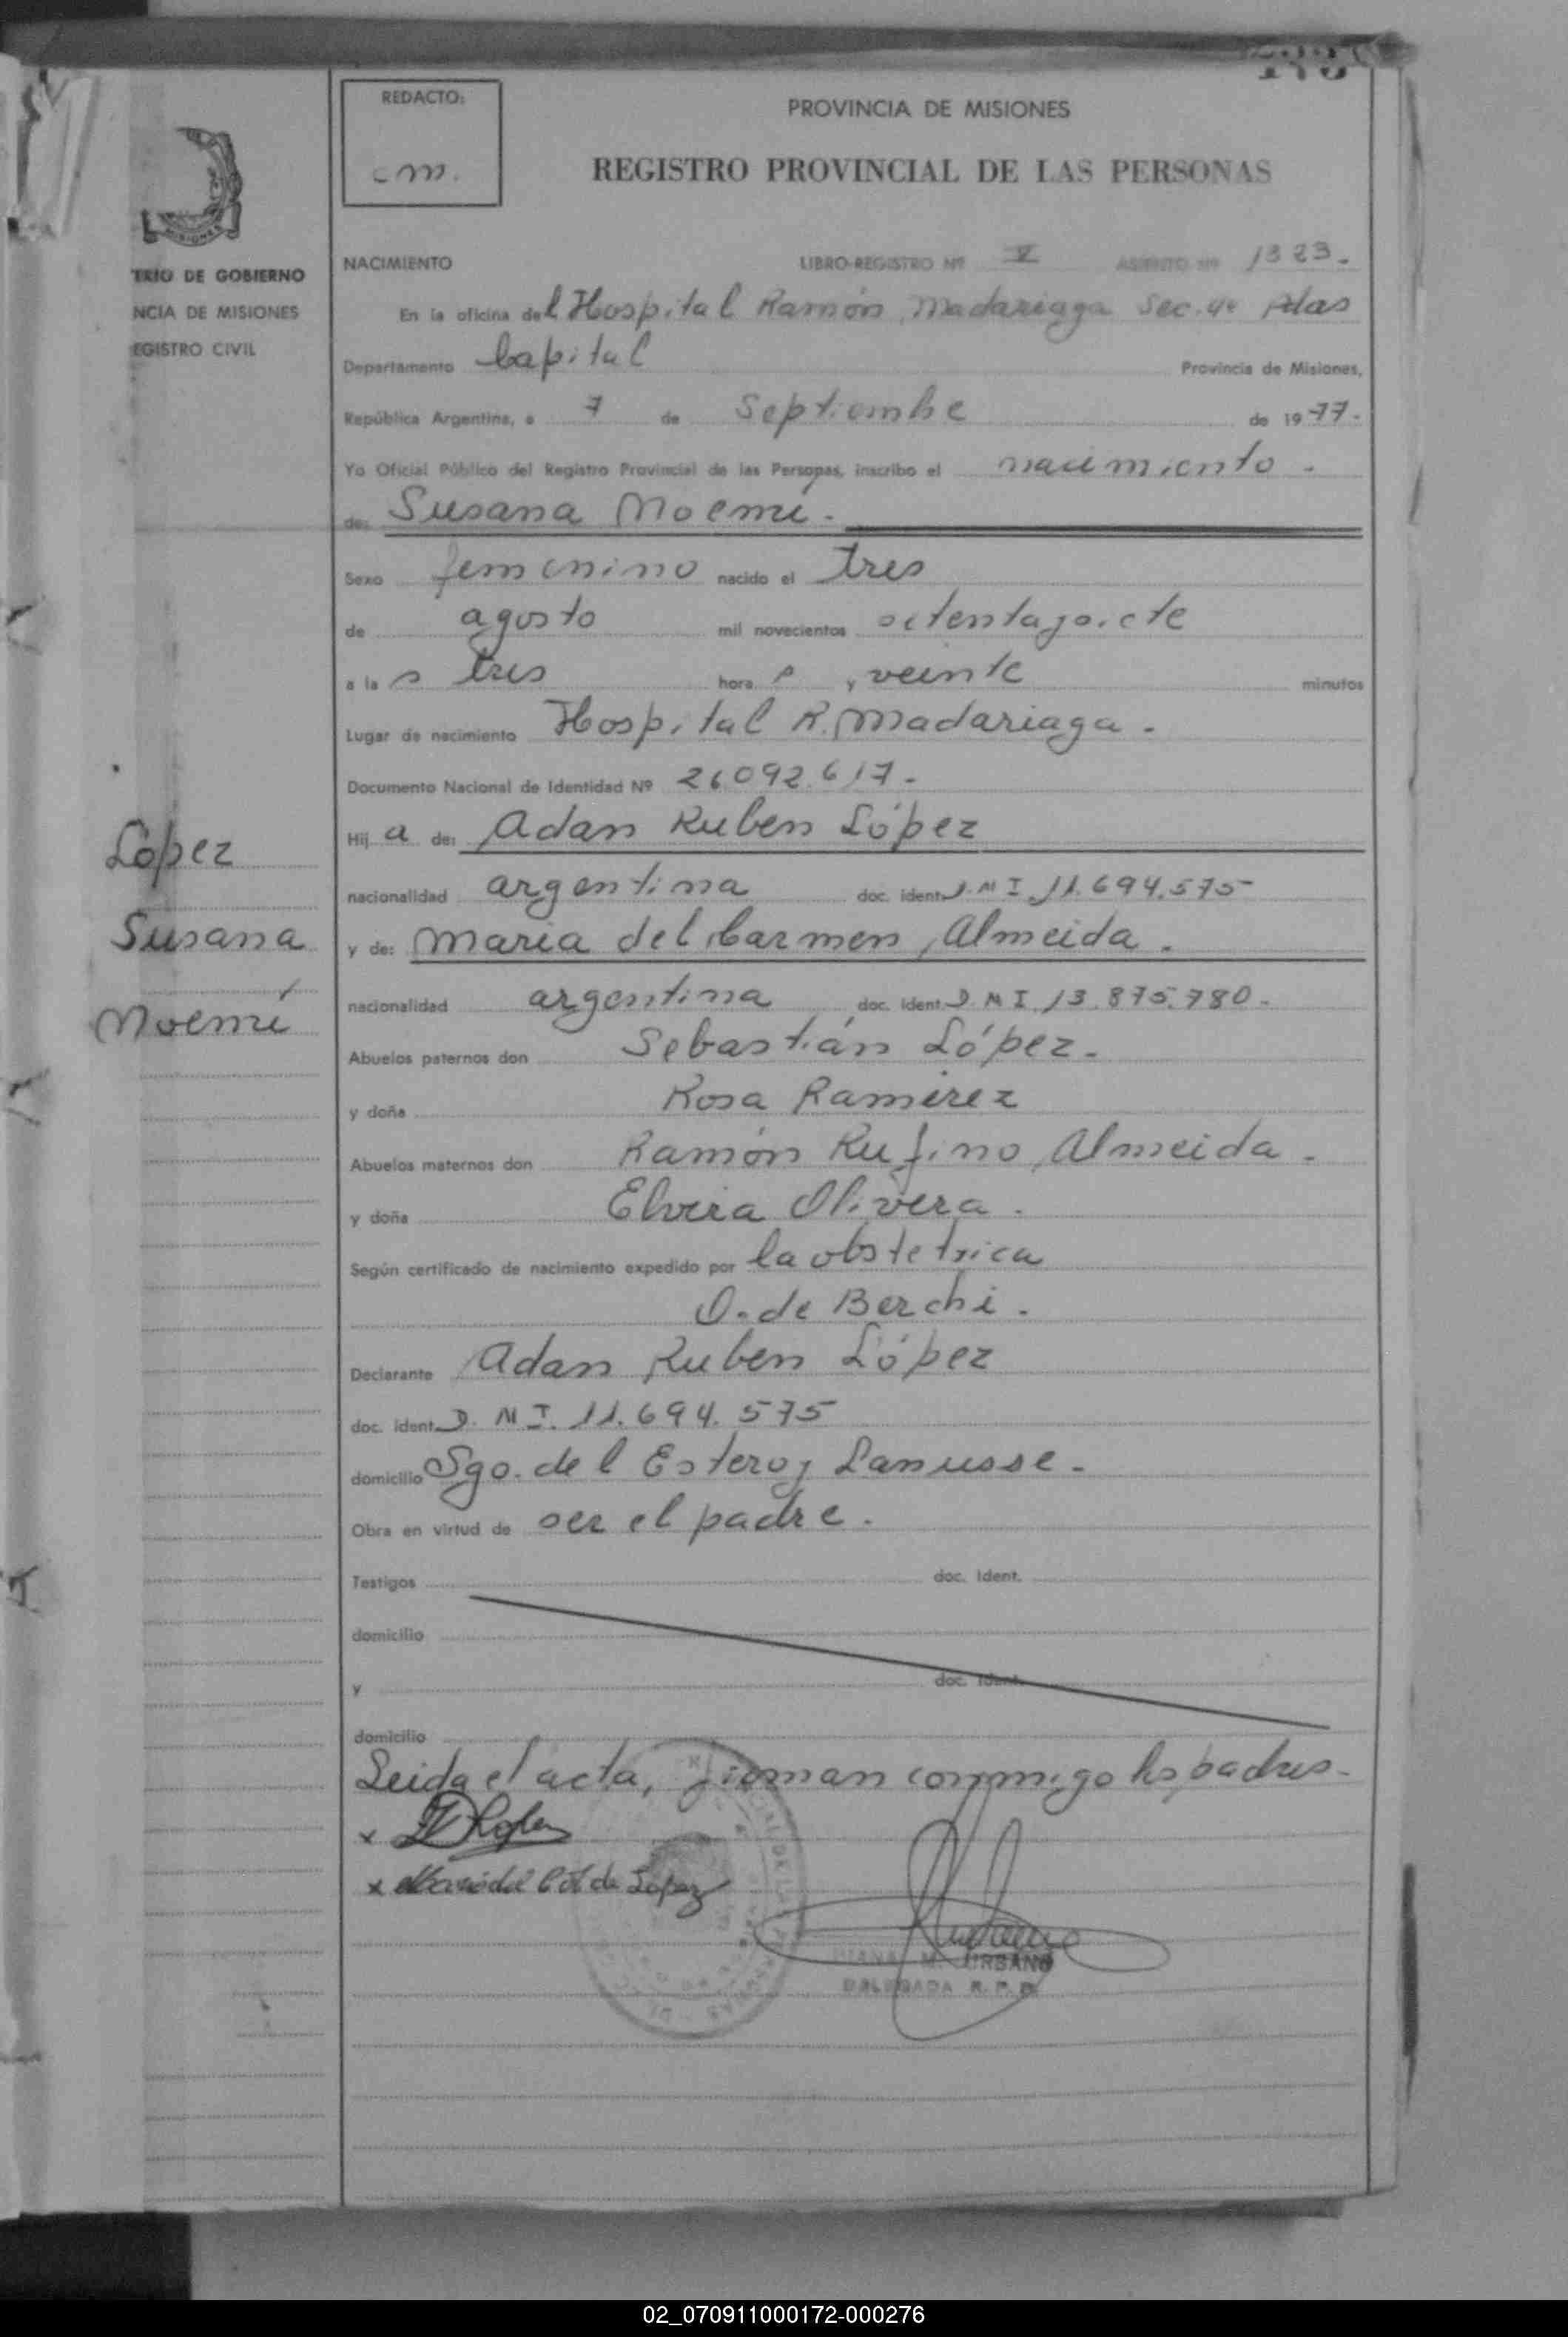 REDACTO:
cm.
PROVINCIA DE MISIONES
REGISTRO PROVINCIAL DE LAS PERSONAS
TRIO DE GOBIERNO
NCIA DE MISIONES
EGISTRO CIVIL
NACIMIENTO LIBRO-REGISTRO Nº V ASIENTO Nº 1323.
En la oficina del Hospital Ramón Madariaga Sec. 4º Pdas
Departamento Capital Provincia de Misiones,
República Argentina, a 7 de Septiembre de 1977.
Yo Oficial Público del Registro Provincial de las Personas, inscribo el nacimiento.
de: Susana Noemí.
Sexo femenino nacido el tres
de agosto mil novecientos setenta y siete
a las tres horas y veinte minutos
Lugar de nacimiento Hospital R. Madariaga.
Documento Nacional de Identidad Nº 26.092.617.
Hija de: Adan Ruben López
nacionalidad argentina doc. ident. D.N I. 11.694.575
y de: Maria del Carmen Almeida.
nacionalidad argentina doc. ident. D N I. 13.875.780.
Abuelos paternos don Sebastián López.
y doña Rosa Ramírez
Abuelos maternos don Ramón Rufino Almeida.
y doña Elvira Olivera.
Según certificado de nacimiento expedido por la obstetrica
O. de Berchi.
Declarante Adan Ruben López
doc. ident. D. N I. 11.694.575
domicilio Sgo. del Estero y Lanusse.
Obra en virtud de ser el padre.
Testigos doc. Ident.
domicilio
y doc. Ident.
domicilio
Leida el acta, firman conmigo los padres.
x
x Maria del C A de Lopez
M. URBANO
DELEGADA R. P. P.
López
Susana
Noemí
02_070911000172-000276